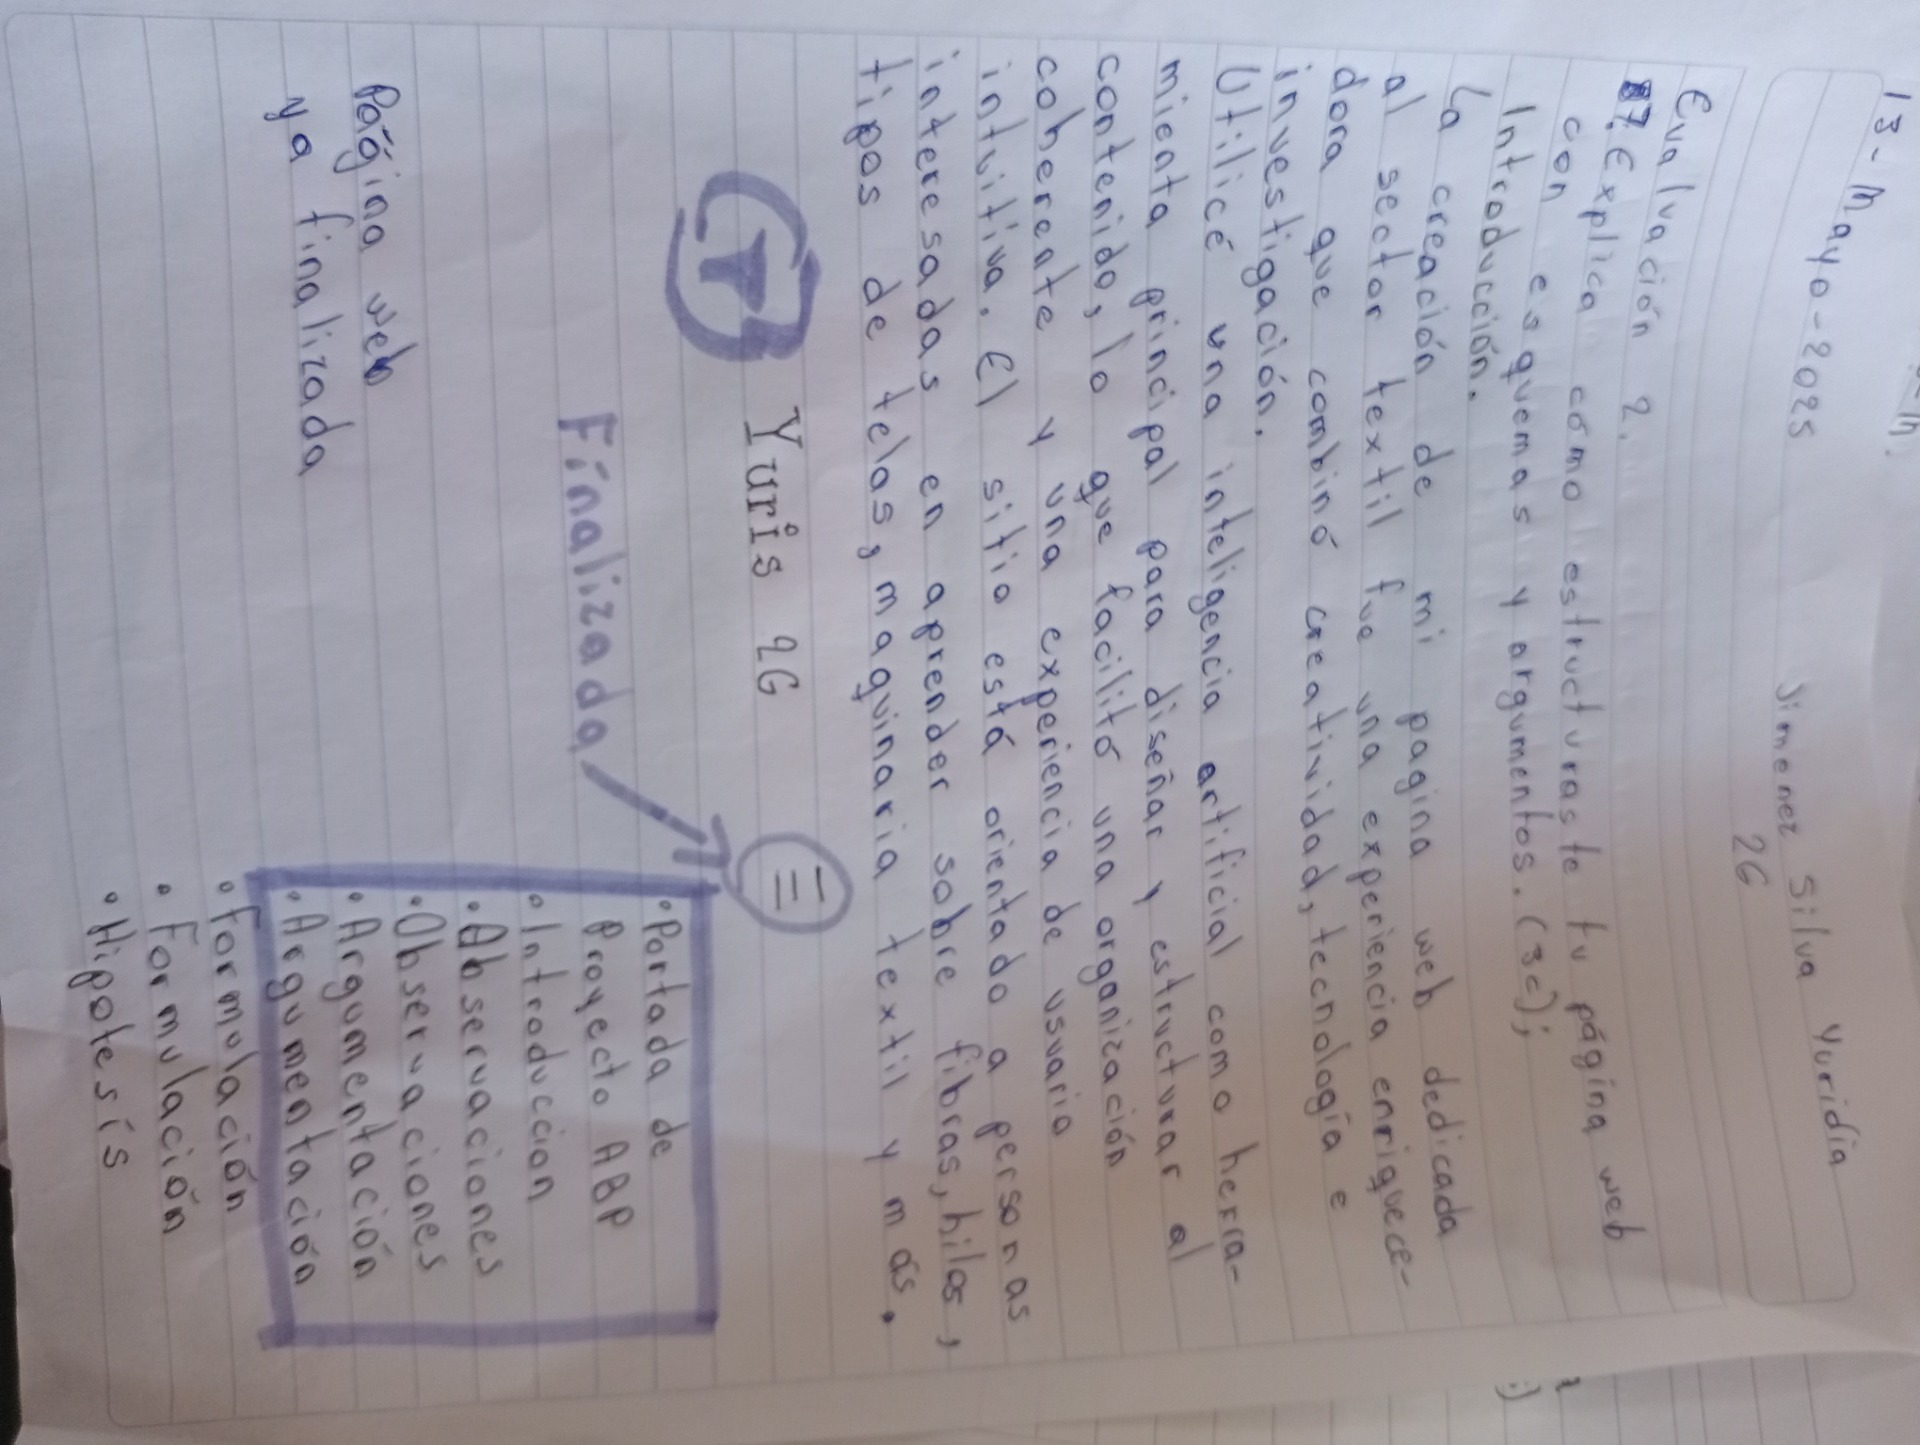 13-Mayo-2025
Jimenez Silva Yuridia
2G
Evaluación 2.
7. Explica cómo estructuraste tu página web
con esquemas y argumentos. (3c);
Introducción.
La creación de mi pagina web dedicada
al sector textil fue una experiencia enriquece-
dora que combinó creatividad, tecnología e
investigación.
Utilicé una inteligencia artificial como herra-
mienta principal para diseñar y estructurar al
contenido, lo que facilitó una organización
coherente y una experiencia de usuario
intuitiva. El sitio está orientado a personas
interesadas en aprender sobre fibras, hilos,
tipos de telas, maquinaria textil y más.
T Yuris 2G
Finalizada
• Portada de
Proyecto ABP
• Introduccion
• Abservaciones
• Observaciones
• Argumentación
• Argumentación
• Formulación
• Formulación
• Hipotesis
Página web
ya finalizada